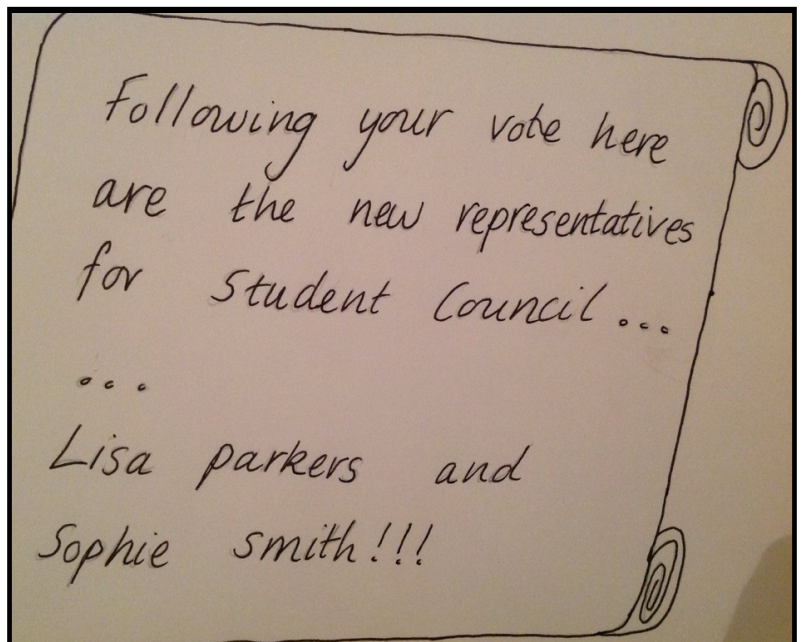 Following your vote here
are the new representatives
for Student Council...
...
Lisa parkers and
Sophie smith!!!